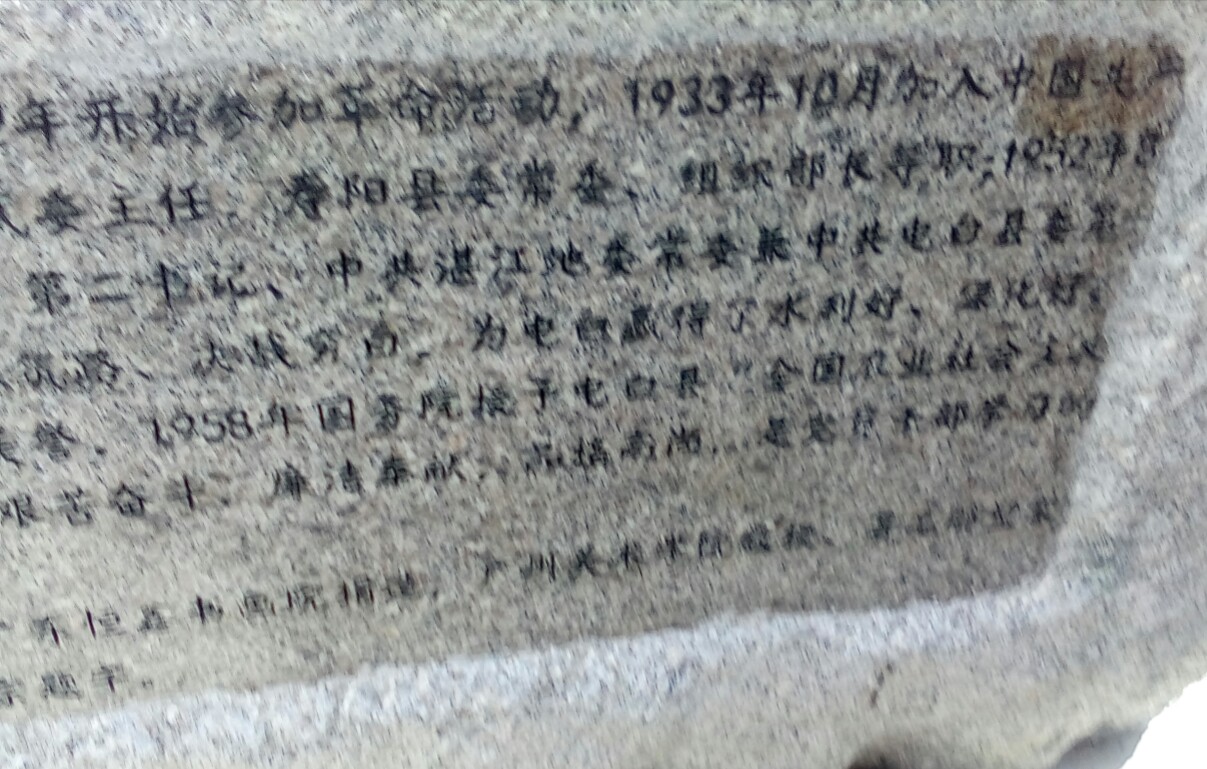 年开始参加革命活动，1933年10月加入中国共产
委主任、寿阳县委常委、组织部长等职；1952年
第二书记、中共湛江地委常委兼中共电白县委
路、决战穷白，为电白赢得了水利好、绿化好、
誉。1958年国务院授予电白县“全国农业社会主义
艰苦奋斗、廉洁奉献、品格高尚，是党员干部学习的
书画院捐建，广州美术学院教授、著名雕塑家
题字。